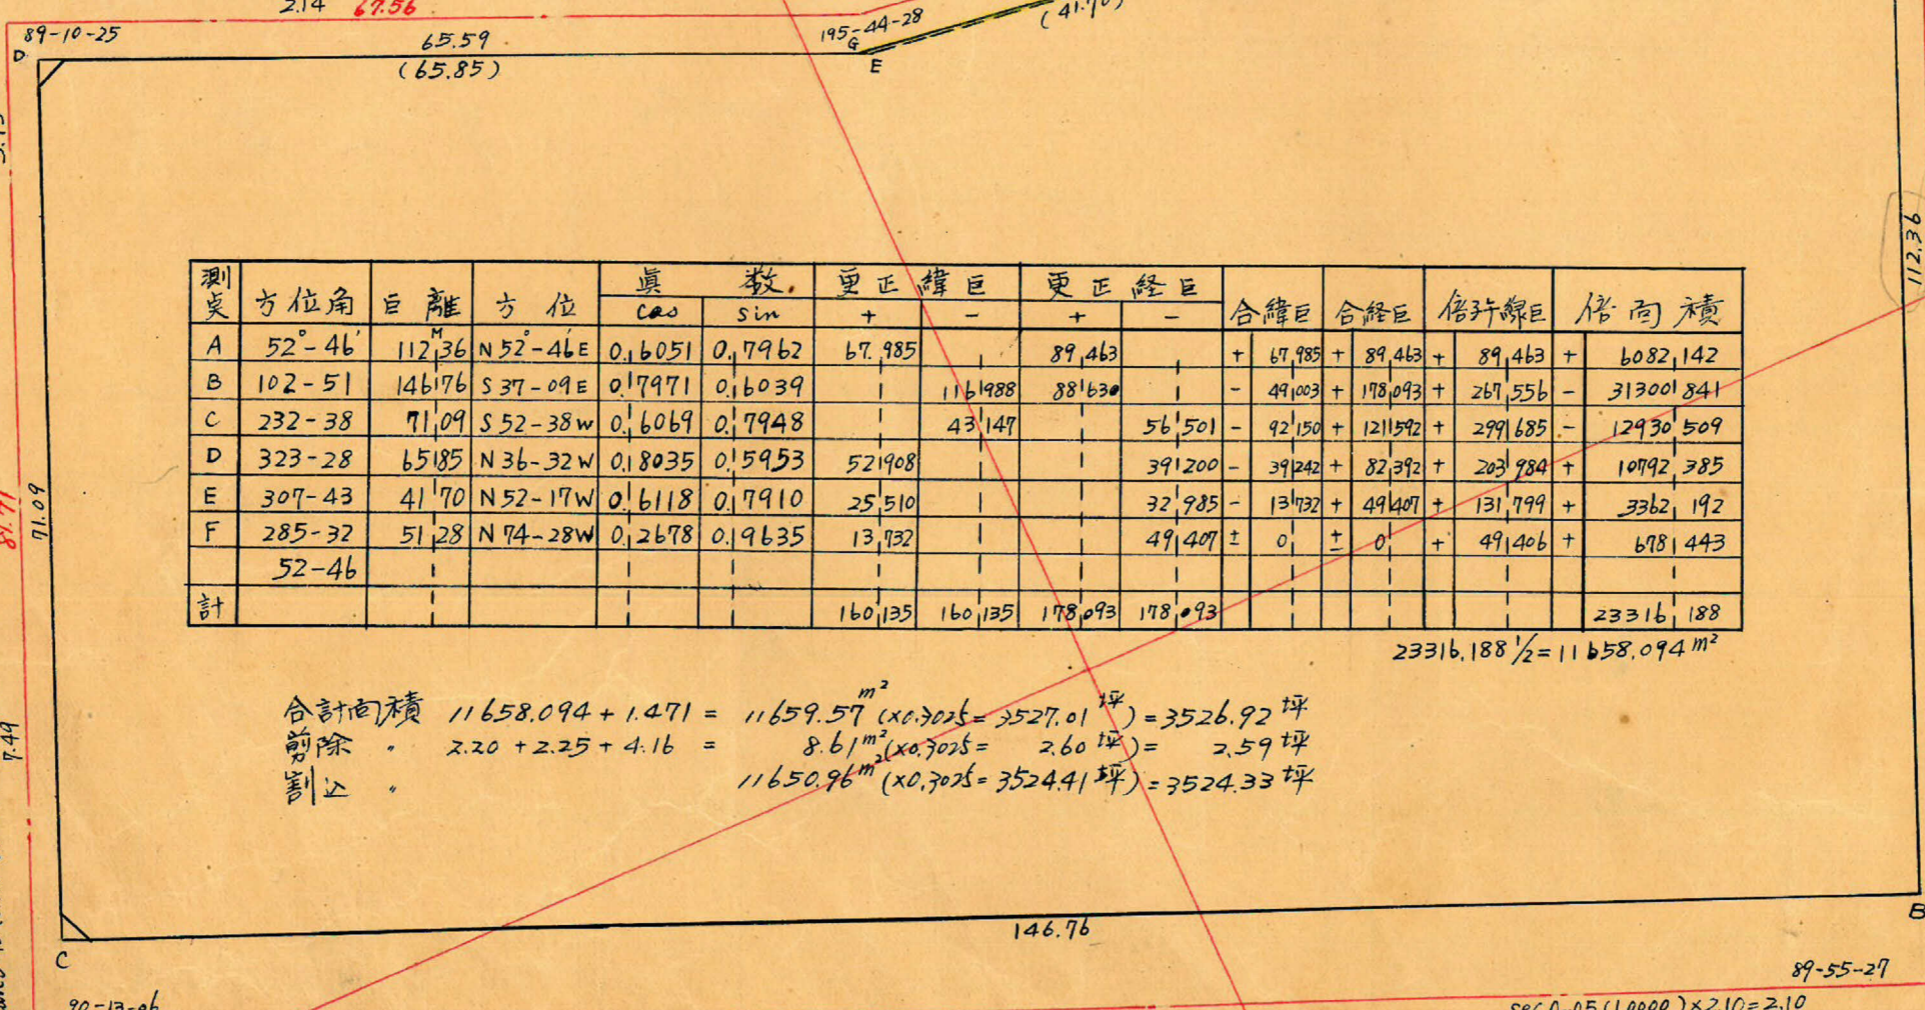 2.14 67.56
89-10-25 65.59 195-44-28 (41.70)
D (65.85) G
E
112.36
測点 方位角 巨離 方位 眞数 更正緯巨 更正経巨 合緯巨 合経巨 倍子午線巨 倍面積
cos sin + - + -
A 52°-46' 112.36 M N 52°-46'E 0.6051 0.7962 67.985 89.463 + 67.985 + 89.463 + 89.463 + 6082.142
B 102-51 146.76 S 37-09E 0.7971 0.6039 116.988 88.630 - 49.003 + 178.093 + 267.556 - 31300.841
C 232-38 71.09 S 52-38W 0.6069 0.7948 43.147 56.501 - 92.150 + 121.592 + 299.685 - 12930.509
D 323-28 65.85 N 36-32W 0.8035 0.5953 52.908 39.200 - 39.242 + 82.392 + 203.984 + 10792.385
E 307-43 41.70 N 52-17W 0.6118 0.7910 25.510 32.985 - 13.732 + 49.407 + 131.799 + 3362.192
F 285-32 51.28 N 74-28W 0.2678 0.9635 13.732 49.407 ± 0 ± 0 + 49.406 + 678.443
52-46
計 160.135 160.135 178.093 178.093 23316.188
23316.188 1/2=11658.094 m²
71.09
81.71
合計面積 11658.094 + 1.471 = 11659.57 m² (×0.3025 = 3527.01坪) = 3526.92坪
剪除 〃 2.20 + 2.25 + 4.16 = 8.61 m² (×0.3025 = 2.60坪) = 2.59坪
割込 〃 11650.96 m² (×0.3025 = 3524.41坪) = 3524.33坪
7.49
146.76 B
C
89-55-27
90-13-06